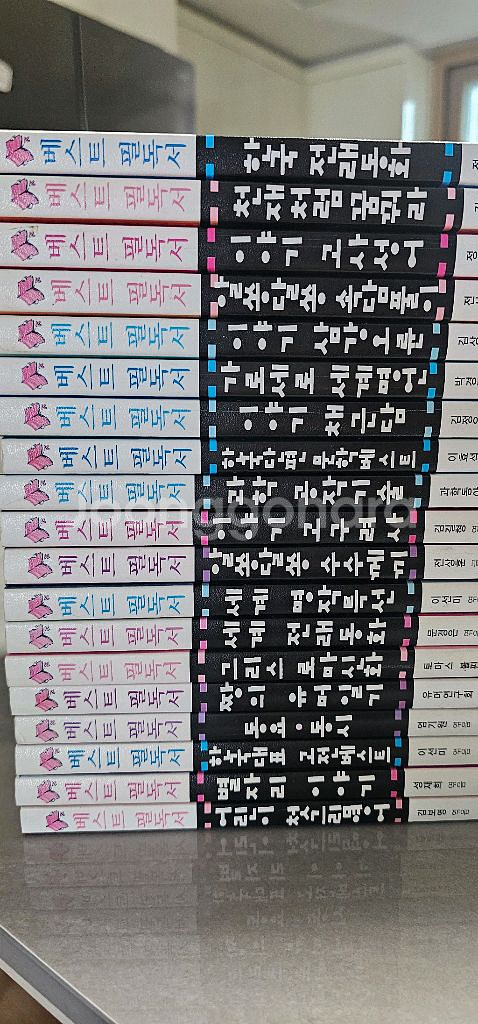 베스트 필독서 한국 전래동화
베스트 필독서 천재처럼 꿈꿔라
베스트 필독서 이야기 고사성어
베스트 필독서 알쏭달쏭 속담풀이
베스트 필독서 이야기 삼강오륜
베스트 필독서 가로세로 세계명언
베스트 필독서 이야기 채근담
베스트 필독서 한국단편 문학베스트 이효석
베스트 필독서 과학 공작기술 과학동아
베스트 필독서 이야기 고구려사
베스트 필독서 알쏭달쏭 수수께끼
베스트 필독서 세계 명작특선 이선미 엮음
베스트 필독서 세계 전래동화 엮음
베스트 필독서 그리스 로마신화 토마스 불핀치
베스트 필독서 짱의 유머일기 유머연구회
베스트 필독서 동요·동시 엮음
베스트 필독서 한국대표 고전베스트 이선미 엮음
베스트 필독서 별자리 이야기 엮음
베스트 필독서 어린이 첫수리영어 엮음
Joonggonara